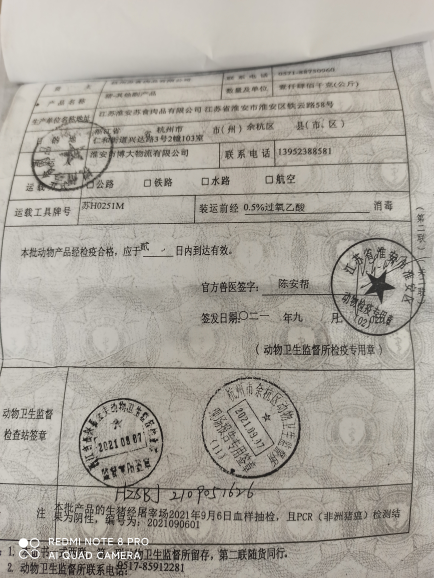 联系电话
产品名称 猪-其他副产品 数量及单位
生产单位名称地址 江苏淮安苏食肉品有限公司 江苏省淮安市淮安区铁云路58号
目的地 浙江省 杭州市 市(州) 余杭区 县(市、区)
仁和街道兴达路3号2幢103室
淮安市博大物流有限公司 联系电话 13952388581
运载 □公路 □铁路 □水路 □航空
运载工具牌号 苏H0251M 装运前经 0.5%过氧乙酸 消毒
本批动物产品经检疫合格,应于贰日内到达有效。
官方兽医签字: 陈安帮
签发日期:〇二一 年九 月
(动物卫生监督所检疫专用章)
江苏省淮安市淮安区
动物检疫专用章
动物卫生监督
检查站签章
2021.09.07
杭州市余杭区动物卫生监督所
2021.09.07
(11)
HZSBJ 2109051626
注 本批产品的生猪经屠宰场2021年9月6日血样抽检,且PCR(非洲猪瘟)检测结
果为阴性,编号为:2021090601
动物卫生监督所留存,第二联随货同行。
2. 动物卫生监督所联系电话: 0517-85912281
REDMI NOTE 8 PRO
AI QUAD CAMERA